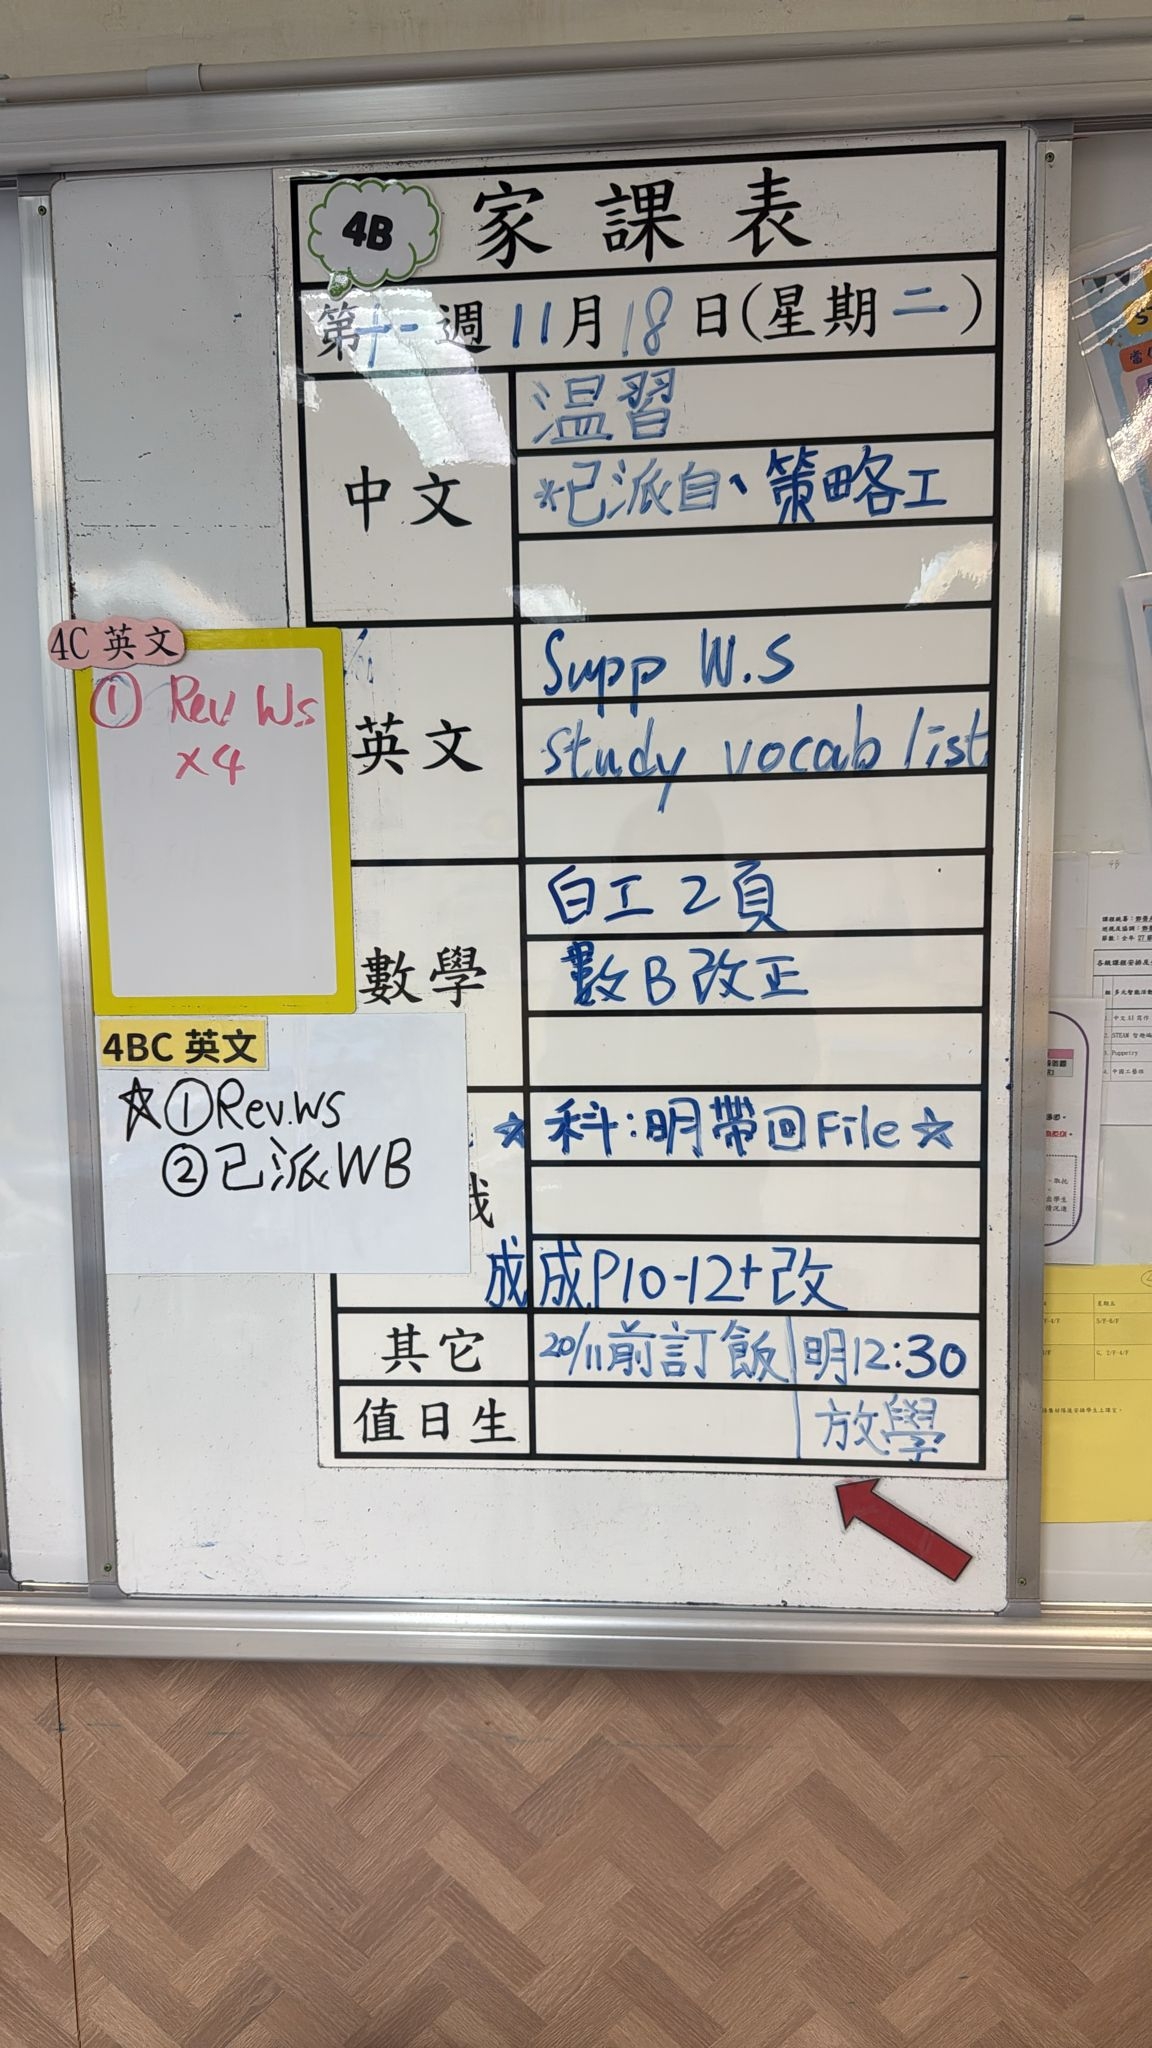 4B
家課表
第十一週11月18日(星期二)
中文
温習
*已派自、策略工
英文
Supp W.S
study vocab list
數學
白工2頁
數B改正
☆科:明帶回File☆
成成P10-12+改
其它
20/11前訂飯|明12:30
放學
值日生
4C 英文
① Rev Ws
x4
4BC 英文
☆①Rev.WS
②已派WB